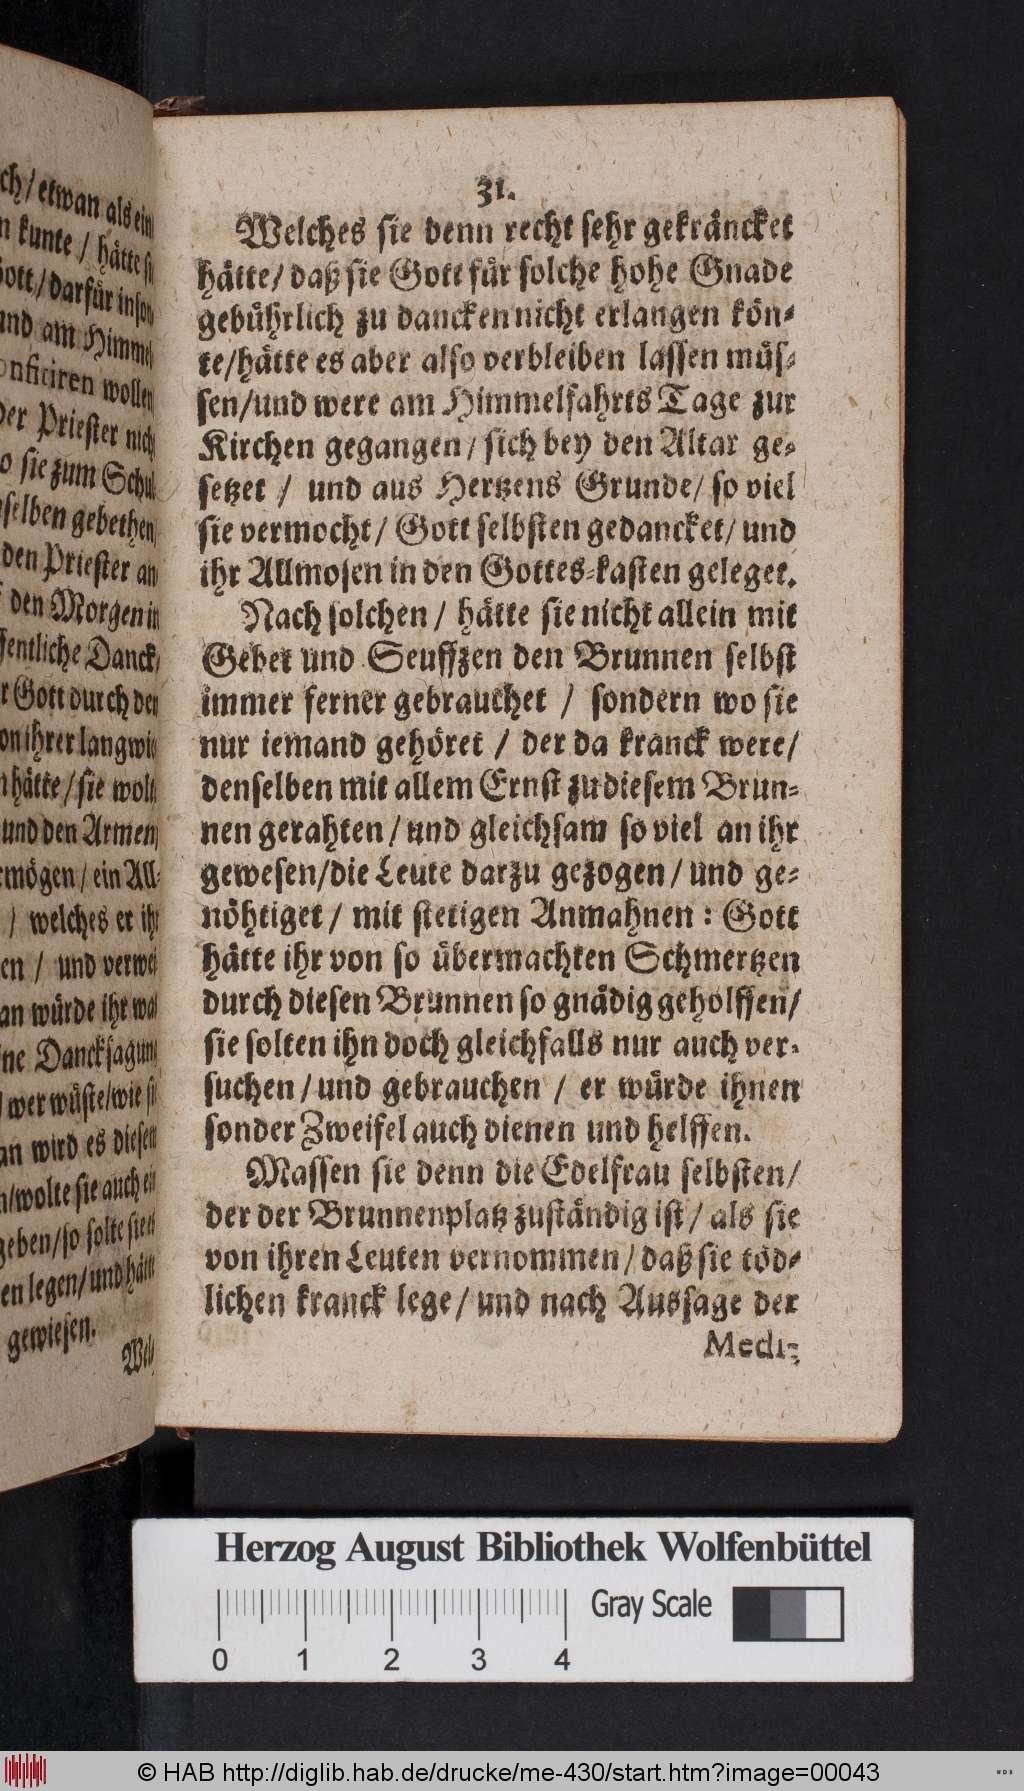 ch/ etwan als ein
n kunte / hätte si
Gott/ darfür inson
und am Himmel
onficiren wollen
der Priester nicht
o sie zum Schul
selben gebethen
den Priester an
den Morgen in
fentliche Danck
r Gott durch den
on ihrer langwie
n hätte/ sie wolt
und den Armen
rmögen/ ein All-
/ welches er ihr
en / und verwei
an würde ihr wol
ine Dancksagung
/ wer wüste/wie si
an wird es diesem
n/wolte sie auch ein
geben/ so solte sie es
en legen/ und hätte
gewiesen.
Wel-
31.
Welches sie denn recht sehr gekräncket
hätte/ daß sie Gott für solche hohe Gnade
gebührlich zu dancken nicht erlangen kön-
te/hätte es aber also verbleiben lassen müs-
sen/und were am Himmelfahrts Tage zur
Kirchen gegangen/ sich bey den Altar ge-
setzet / und aus Hertzens Grunde/ so viel
sie vermocht/ Gott selbsten gedancket/ und
ihr Allmosen in den Gottes-kasten geleget.
Nach solchen / hätte sie nicht allein mit
Gebet und Seuffzen den Brunnen selbst
immer ferner gebrauchet / sondern wo sie
nur iemand gehöret / der da kranck were/
denselben mit allem Ernst zu diesem Brun-
nen gerahten/ und gleichsam so viel an ihr
gewesen/die Leute darzu gezogen/ und ge-
nöhtiget/ mit stetigen Anmahnen: Gott
hätte ihr von so übermachten Schmertzen
durch diesen Brunnen so gnädig geholffen/
sie solten ihn doch gleichfalls nur auch ver-
suchen/ und gebrauchen / er würde ihnen
sonder Zweifel auch dienen und helffen.
Massen sie denn die Edelfrau selbsten/
der der Brunnenplatz zuständig ist/ als sie
von ihren Leuten vernommen/ daß sie töd-
lichen kranck lege/ und nach Aussage der
Medi-
Herzog August Bibliothek Wolfenbüttel
Gray Scale
0 1 2 3 4
© HAB http://diglib.hab.de/drucke/me-430/start.htm?image=00043